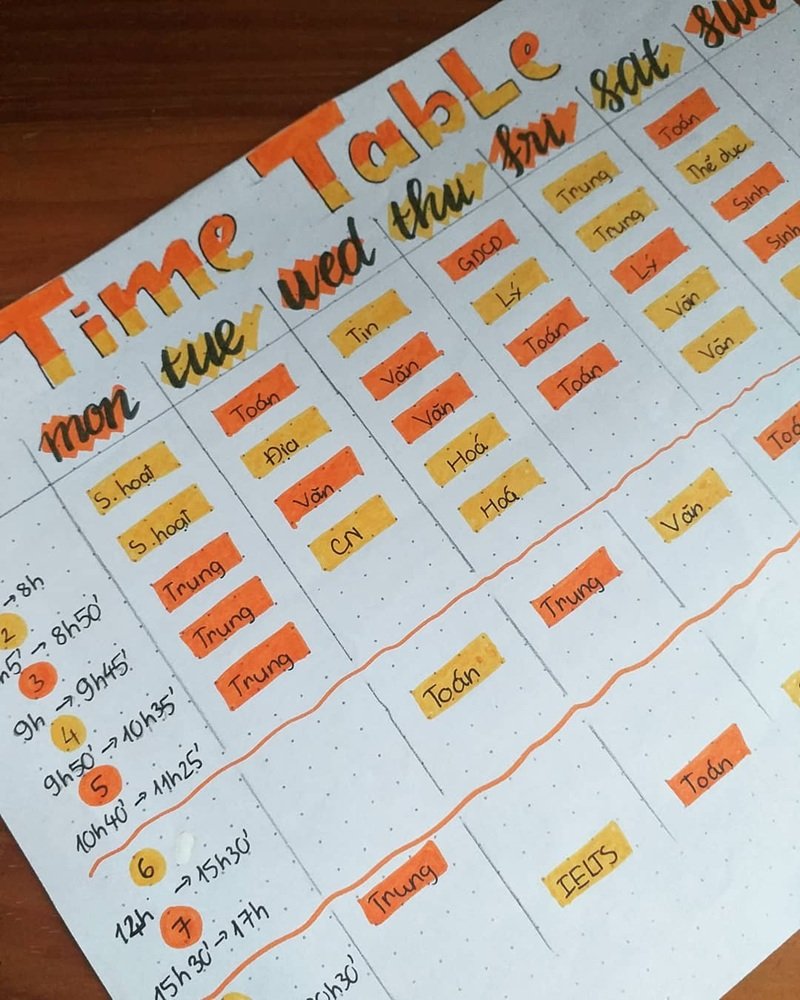 Time Table
mon tue wed thu fri sat sun
→ 8h S.hoạt Toán Tin GDCD Trung Toán
2
h5' → 8h50' S.hoạt Địa Văn Lý Trung Thể dục
3
9h → 9h45' Trung Văn Văn Toán Lý Sinh
4
9h50' → 10h35' Trung CN Hoá Toán Văn Sinh
5
10h40' → 11h25' Trung Hoá Văn
6
14h → 15h30' Toán Trung Văn Toá
7
15h30' → 17h
0h30' Trung IELTS Toán